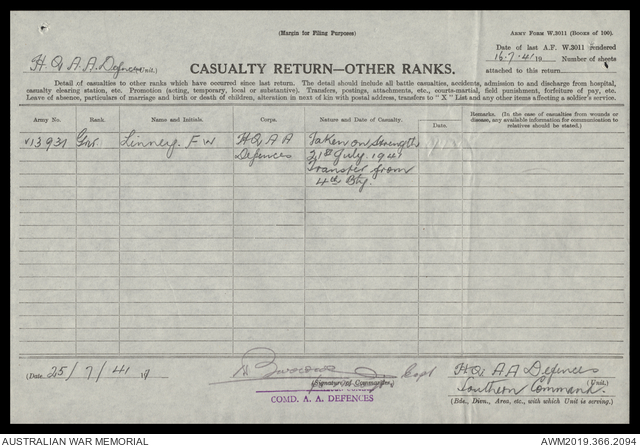 (Margin for Filing Purposes)
ARMY FORM W.3011 (BOOKS OF 100).
Date of last A.F. W.3011 rendered
16.7.41 19
Number of sheets
attached to this return
H.Q A.A. Defences (Unit.)
CASUALTY RETURN—OTHER RANKS.
Detail of casualties to other ranks which have occurred since last return. The detail should include all battle casualties, accidents, admission to and discharge from hospital,
casualty clearing station, etc. Promotion (acting, temporary, local or substantive). Transfers, postings, attachments, etc., courts-martial, field punishment, forfeiture of pay, etc.
Leave of absence, particulars of marriage and birth or death of children, alteration in next of kin with postal address, transfers to "X" List and any other items affecting a soldier's service.
Army No. Rank. Name and Initials. Corps. Nature and Date of Casualty. Remarks. (In the case of casualties from wounds or
disease, any available information for communication to
relatives should be stated.)
V13931 Gnr. Linney. F W H Q A A Taken on Strength
Defences 21st July. 1941
Transfer from
4th Bty.
(Date. 25/7/41 19
Capt
(Signature of Commander.)
COMD. A. A. DEFENCES
H.Q A A Defences
(Unit.)
Southern Command.
(Bde., Divn., Area, etc., with which Unit is serving.)
AUSTRALIAN WAR MEMORIAL
AWM2019.366.2094